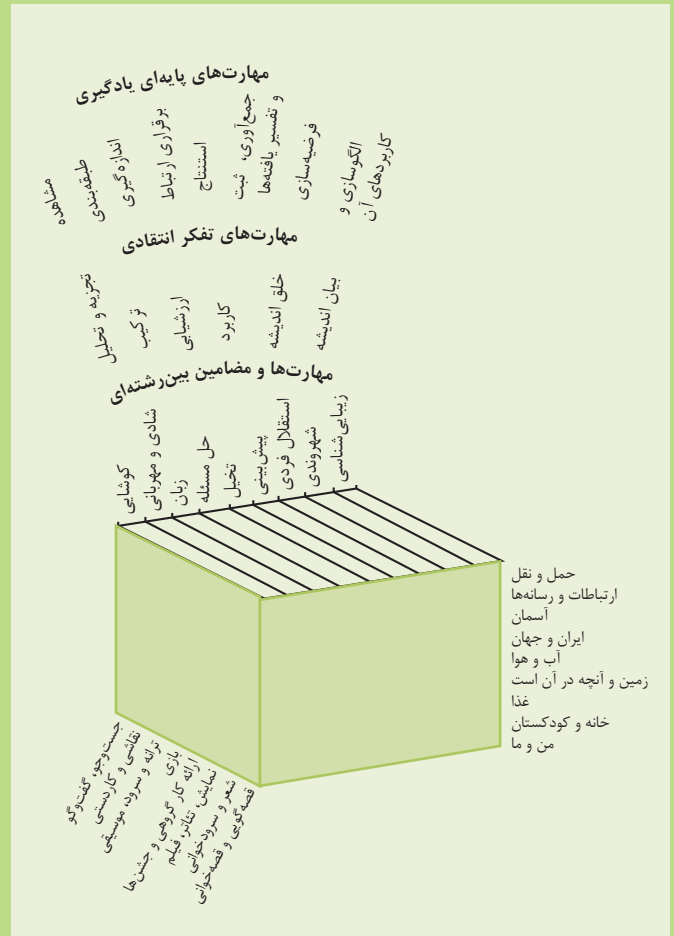 مهارت‌های پایه‌ای یادگیری
مشاهده
طبقه‌بندی
اندازه‌گیری
برقراری ارتباط
استنتاج
جمع‌آوری، ثبت
و تفسیر یافته‌ها
فرضیه‌سازی
الگوسازی و
کاربردهای آن
مهارت‌های تفکر انتقادی
تجزیه و تحلیل
ترکیب
ارزشیابی
کاربرد
خلق اندیشه
بیان اندیشه
مهارت‌ها و مضامین بین‌رشته‌ای
کوشایی
شادی و مهربانی
زبان
حل مسئله
تخیل
پیش‌بینی
استقلال فردی
شهروندی
زیبایی‌شناسی
حمل و نقل
ارتباطات و رسانه‌ها
آسمان
ایران و جهان
آب و هوا
زمین و آنچه در آن است
غذا
خانه و کودکستان
من و ما
جست‌وجو، گفت‌وگو
نقاشی و کاردستی
ترانه و سرود، موسیقی
بازی
ارائه کار گروهی و جشن‌ها
نمایش، تئاتر، فیلم
شعر و سرودخوانی
قصه‌گویی و قصه‌خوانی